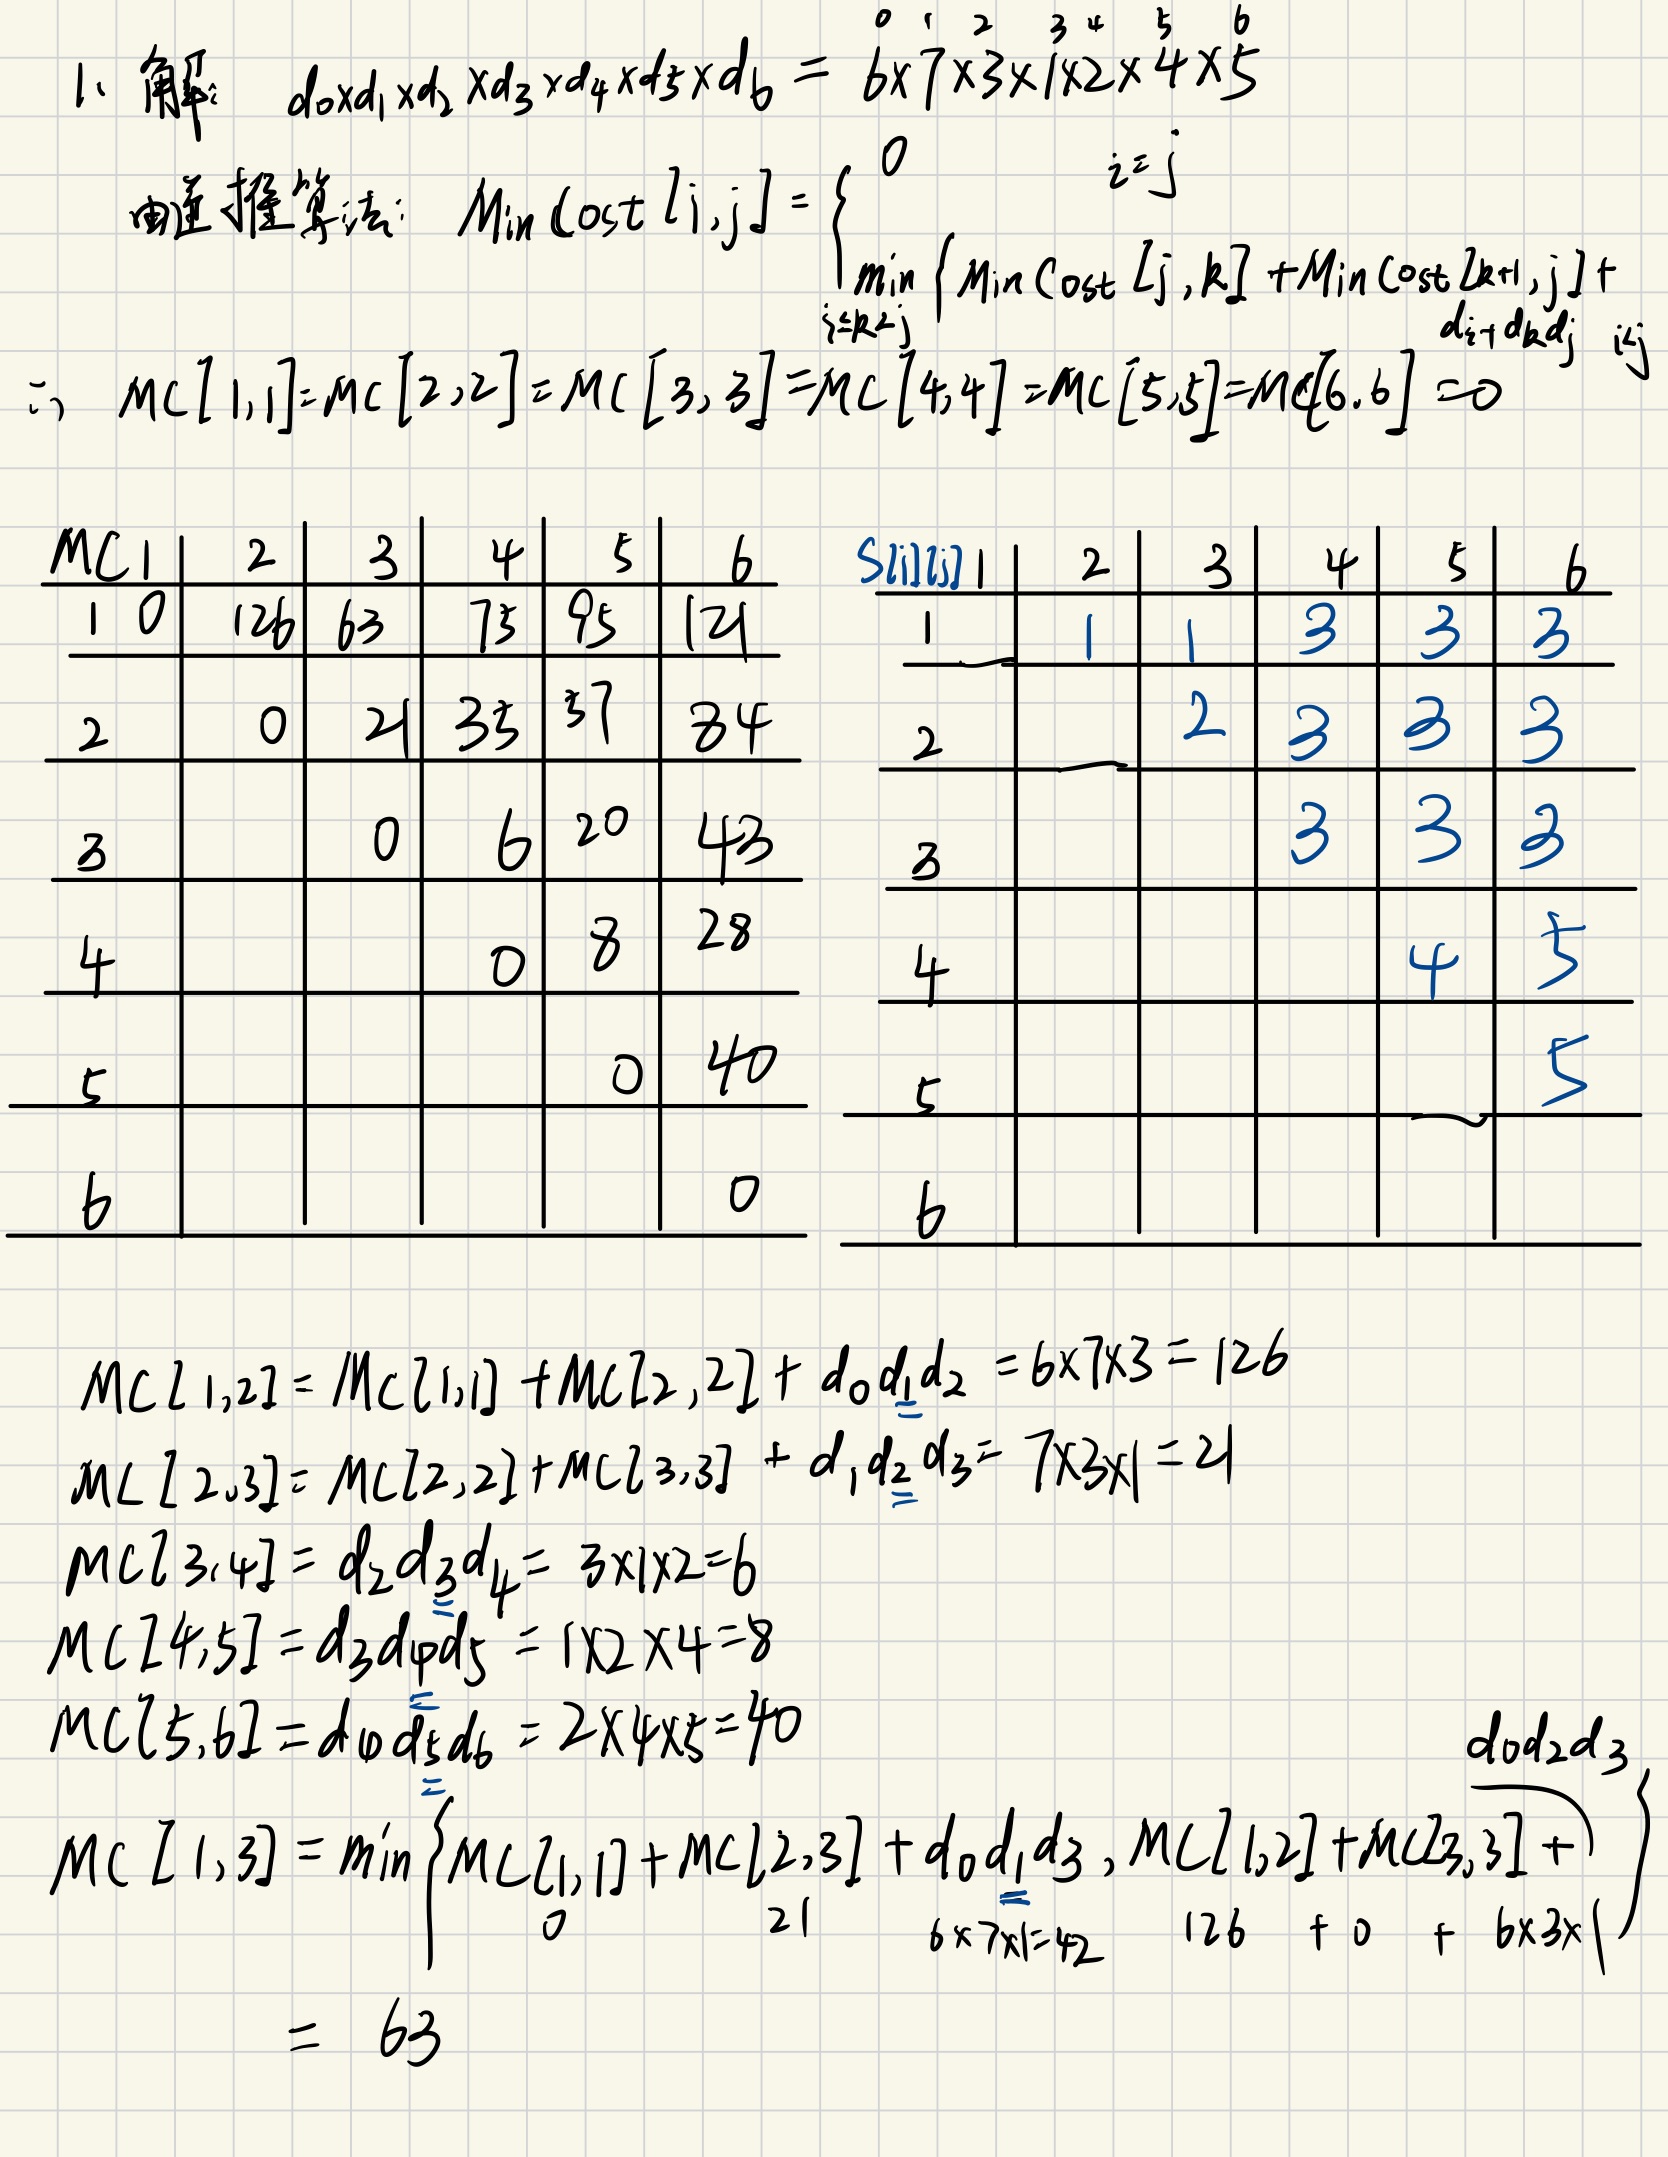 0 1 2 3 4 5 6
1、解: d0×d1×d2×d3×d4×d5×d6 = 6×7×3×1×2×4×5
由递推算法: MinCost[i,j] = { 0 i=j
min {MinCost[j,k] + MinCost[k+1,j] +
i≤k<j di-1dkdj i<j
∴ MC[1,1]=MC[2,2]=MC[3,3]=MC[4,4]=MC[5,5]=MC[6,6]=0
MC 1 2 3 4 5 6
1 0 126 63 75 95 121
2 0 21 35 57 84
3 0 6 20 43
4 0 8 28
5 0 40
6 0
S[i][j] 1 2 3 4 5 6
1 1 1 3 3 3
2 2 3 3 3
3 3 3 3
4 4 5
5 5
6
MC[1,2] = MC[1,1] + MC[2,2] + d0d1d2 = 6×7×3 = 126
MC[2,3] = MC[2,2] + MC[3,3] + d1d2d3 = 7×3×1 = 21
MC[3,4] = d2d3d4 = 3×1×2=6
MC[4,5] = d3d4d5 = 1×2×4=8
MC[5,6] = d4d5d6 = 2×4×5=40
d0d2d3
MC[1,3] = min{MC[1,1] + MC[2,3] + d0d1d3, MC[1,2] + MC[3,3] + }
0 21 6×7×1=42 126 + 0 + 6×3×1
= 63